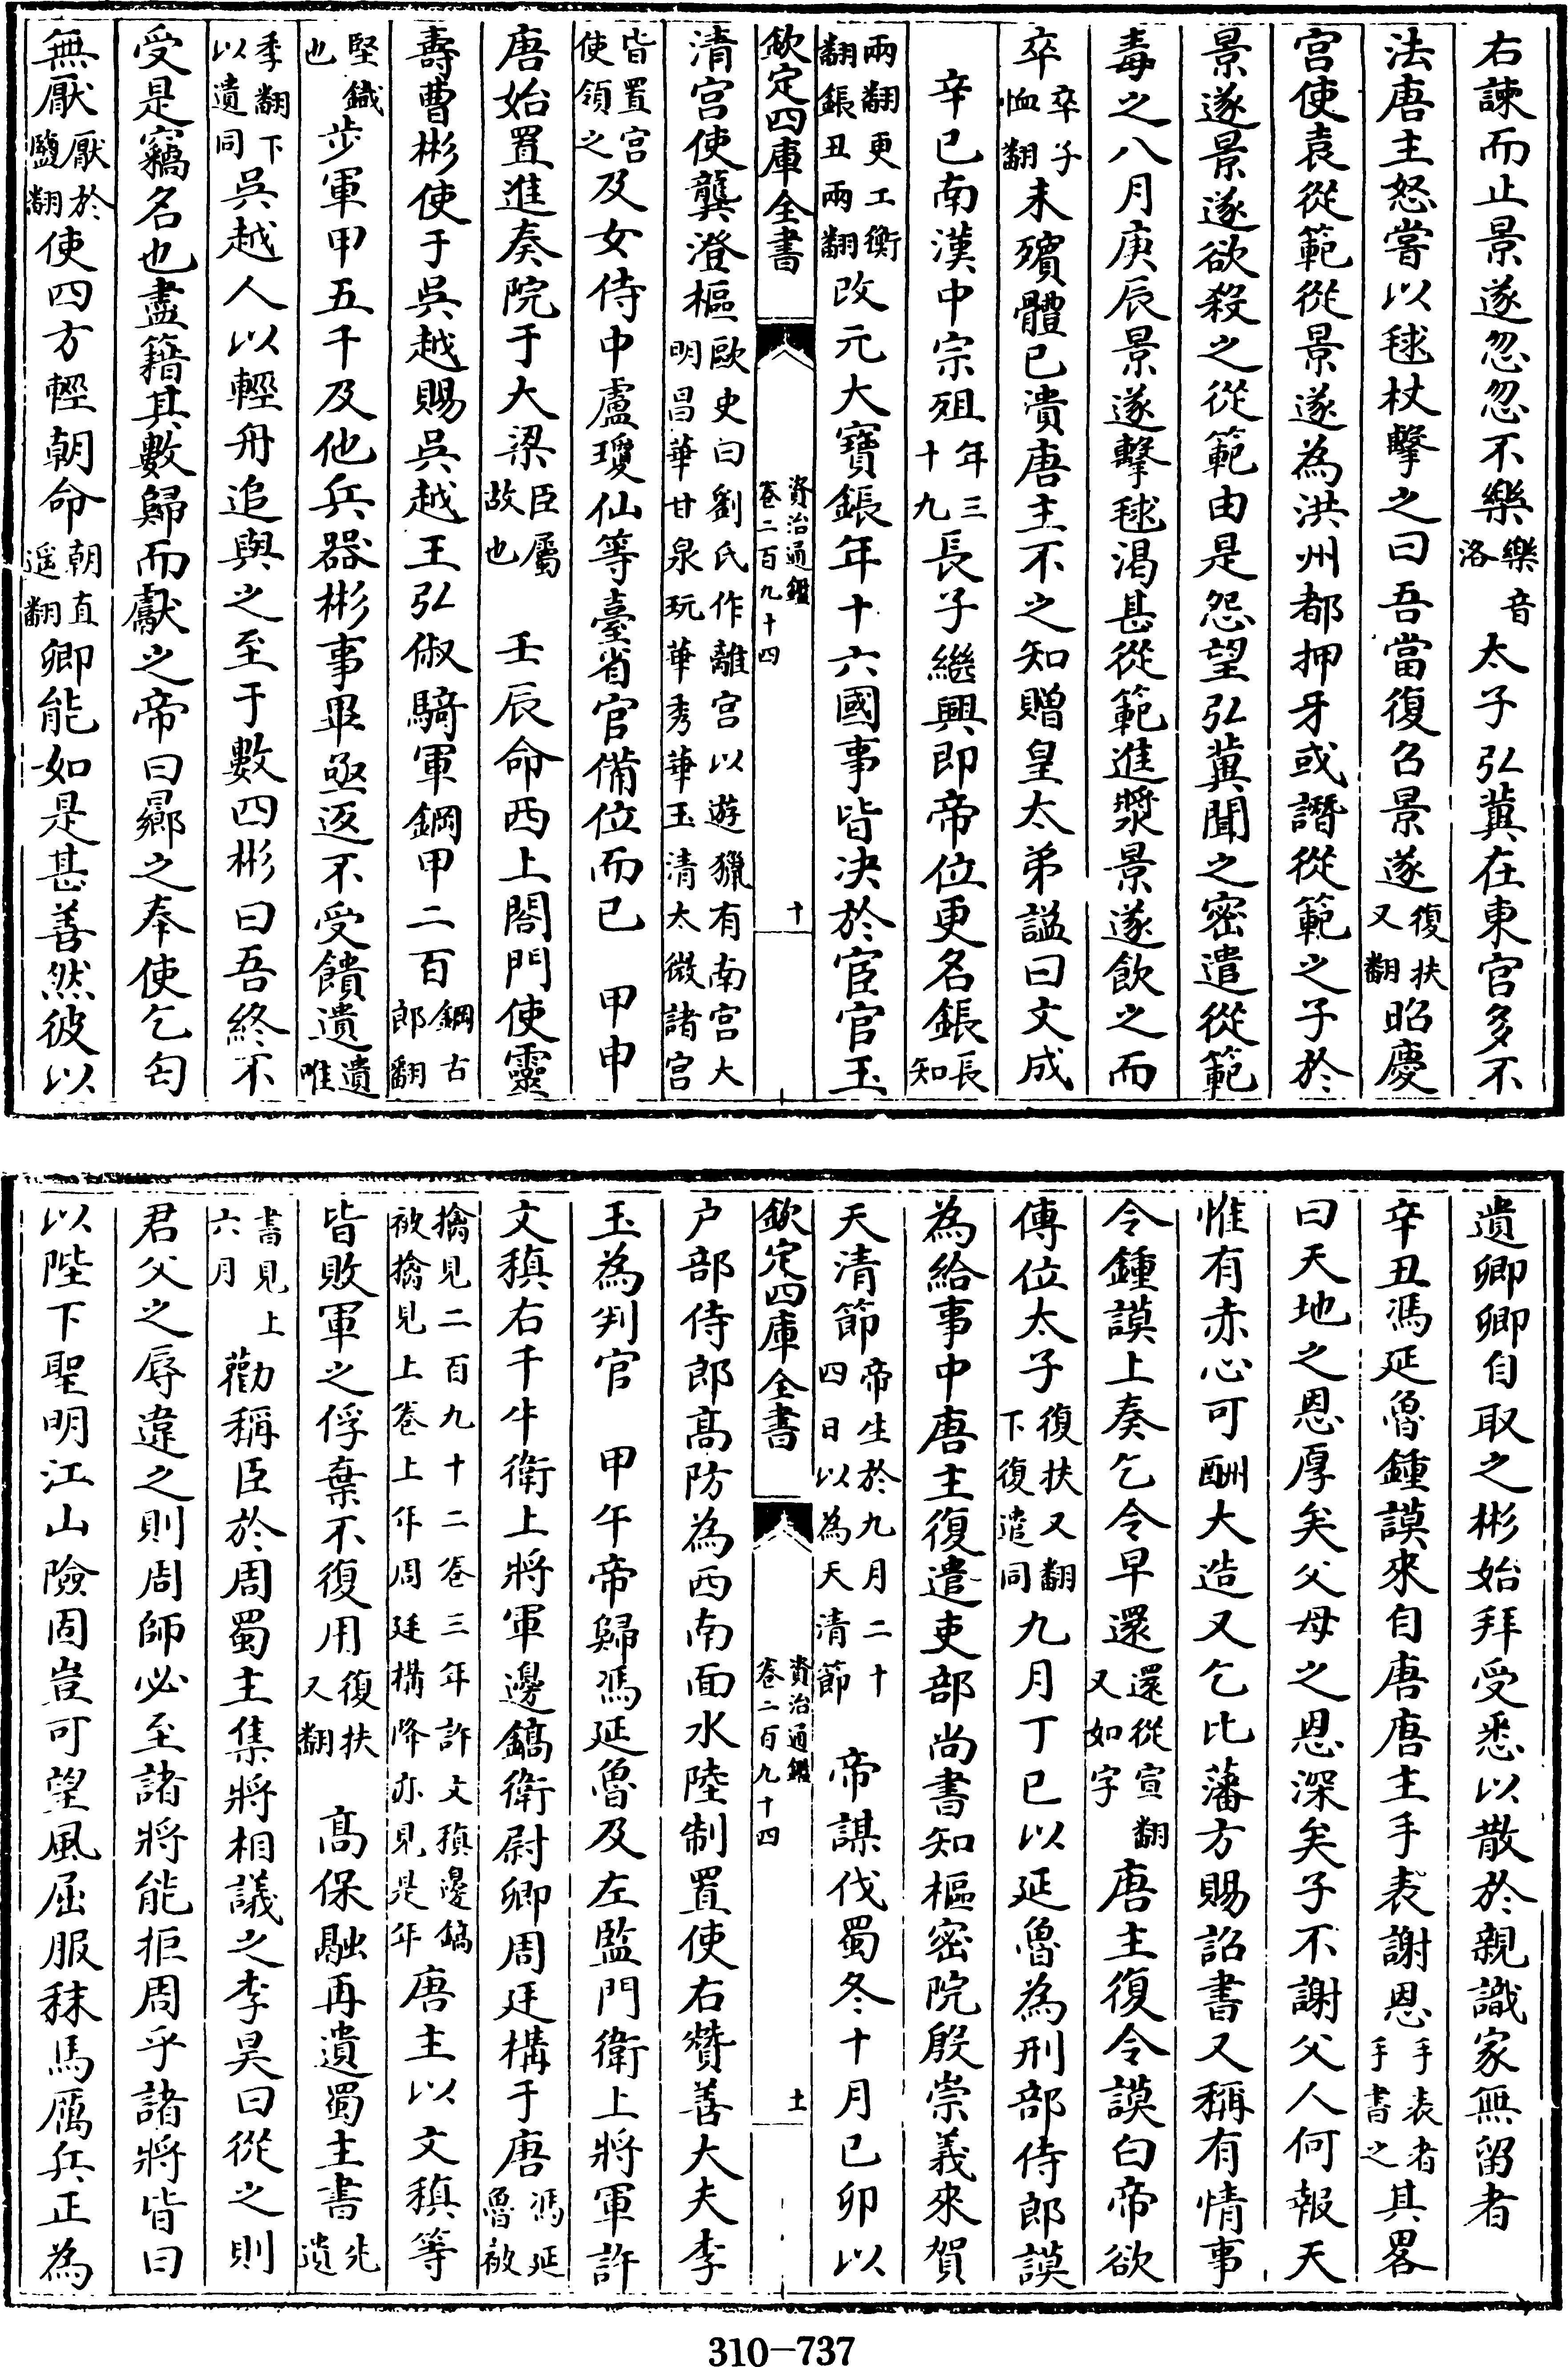 右諫而止景遂忽忽不樂樂音洛太子弘冀在東宫多不
法唐主怒嘗以毬杖擊之曰吾當復召景遂復扶又翻昭慶
宫使袁從範從景遂為洪州都押牙或譖從範之子於
景遂景遂欲殺之從範由是怨望弘冀聞之密遣從範
毒之八月庚辰景遂擊毬渴甚從範進漿景遂飲之而
卒卒子恤翻未殯體已潰唐主不之知贈皇太弟諡曰文成
辛巳南漢中宗殂年三十九長子繼興即帝位更名鋹長知
兩翻更工衡翻鋹丑兩翻改元大寶鋹年十六國事皆決於宦官玉
欽定四庫全書 資治通鑑卷二百九十四 十
清宫使龔澄樞歐史曰劉氏作離宫以遊獵有南宫大明昌華甘泉玩華秀華玉清太微諸宫
皆置宫使領之及女侍中盧瓊仙等臺省官備位而已 甲申
唐始置進奏院于大梁臣屬故也 壬辰命西上閤門使靈
壽曹彬使于吳越賜吳越王弘俶騎軍鋼甲二百鋼古郎翻
堅鐡也步軍甲五千及他兵器彬事畢亟返不受饋遺遺唯
季翻下以遺同吳越人以輕舟追與之至于數四彬曰吾終不
受是竊名也盡籍其數歸而獻之帝曰曏之奉使乞匄
無厭厭於鹽翻使四方輕朝命朝直遥翻卿能如是甚善然彼以
遺卿卿自取之彬始拜受悉以散於親識家無留者
辛丑馮延魯鍾謨來自唐唐主手表謝恩手表者手書之其畧
曰天地之恩厚矣父母之恩深矣子不謝父人何報天
惟有赤心可酬大造又乞比藩方賜詔書又稱有情事
令鍾謨上奏乞令早還還從宣翻又如字唐主復令謨白帝欲
傳位太子復扶又翻下復遣同九月丁巳以延魯為刑部侍郎謨
為給事中唐主復遣吏部尚書知樞密院殷崇義來賀
天清節帝生於九月二十四日以為天清節 帝謀伐蜀冬十月己卯以
欽定四庫全書 資治通鑑卷二百九十四 十一
户部侍郎髙防為西南面水陸制置使右贊善大夫李
玉為判官 甲午帝歸馮延魯及左監門衛上將軍許
文稹右千牛衛上將軍邊鎬衛尉卿周廷構于唐馮延魯被
擒見二百九十二卷三年許文稹邊鎬被擒見上卷上年周廷構降亦見是年唐主以文稹等
皆敗軍之俘棄不復用復扶又翻 髙保融再遺蜀主書先遺
書見上六月勸稱臣於周蜀主集將相議之李昊曰從之則
君父之辱違之則周師必至諸將能拒周乎諸將皆曰
以陛下聖明江山險固豈可望風屈服秣馬厲兵正為
310-737